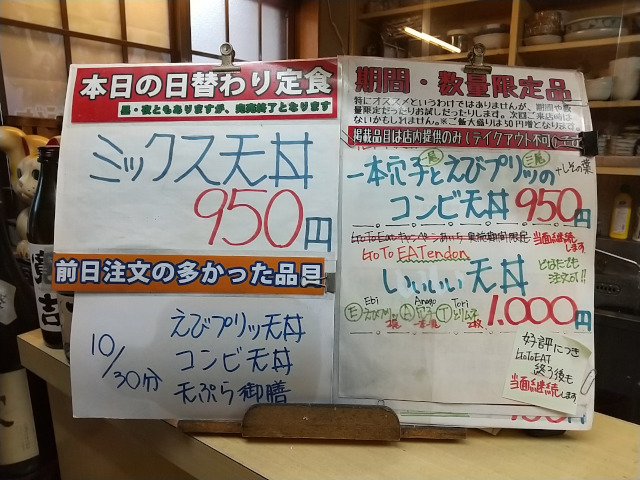 本日の日替わり定食
昼・夜ともありますが、完売終了となります
ミックス天丼
950円
前日注文の多かった品目
10/30分
えびプリッ天丼
コンビ天丼
天ぷら御膳
期間・数量限定品
特にオススメというわけではありませんが、期間や数
量限定だったりお試しだったりします。次回ご来店時は
ないかもしれません。※ご飯大盛りは50円増となります。
掲載品目は店内提供のみ(テイクアウト不可)
一本穴子とえびプリッの
+しその葉
コンビ天丼 950円
GoToEatキャンペーンあいち 実施期間限定 当面継続します
GoTo EATendon
いいいい天丼
どなたでも
注文OK!!
Ebi Anago Tori
E えびプリッ A 穴子 T とりムネ
1.000円
好評につき
GoToEAT
終了後も
当面継続します